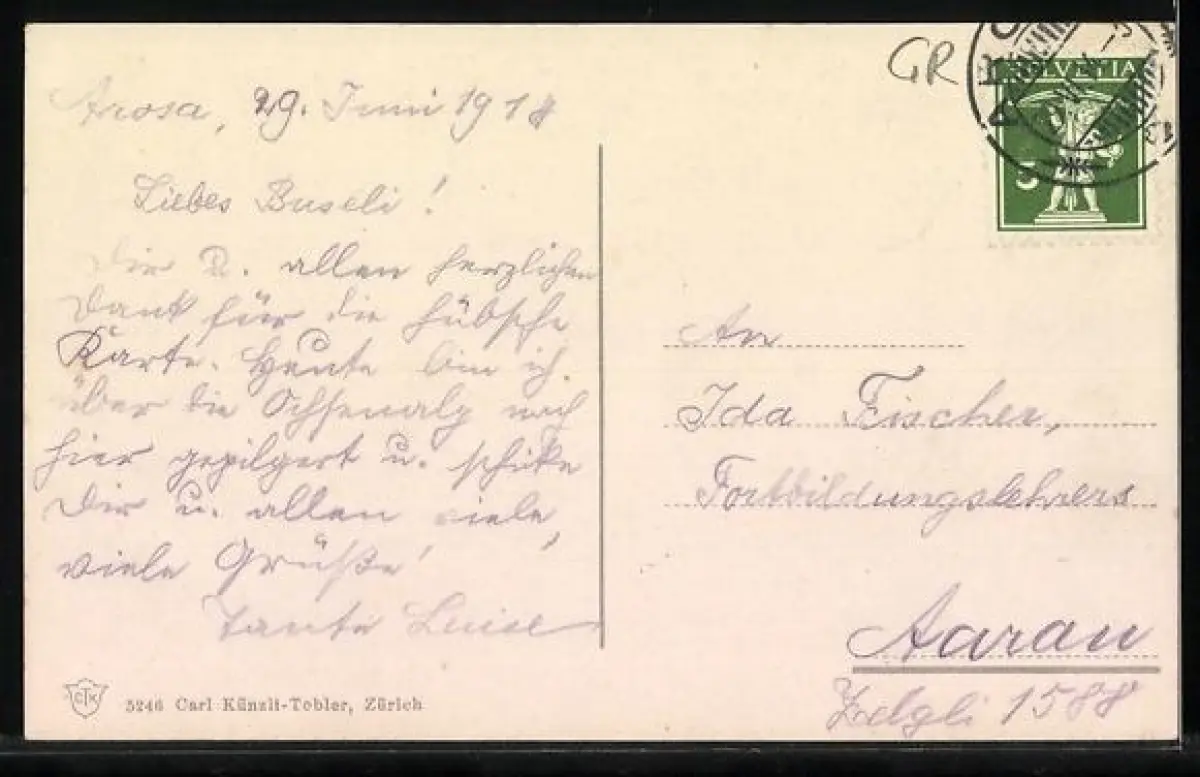 Arosa, 29. Juni 1918
Liebes Buseli!
Dir u. allen herzlichen
Dank für die hübsche
Karte. Heute bin ich
über die Ochsenalp nach
hier gepilgert u. schicke
Dir u. allen viele,
viele Grüße!
Tante Luise
CTK
5246 Carl Künzli-Tobler, Zürich
GR
ARO
HELVETIA
5
An
Ida Fischer,
Fortbildungslehrers
Aarau
Zelgli 1588